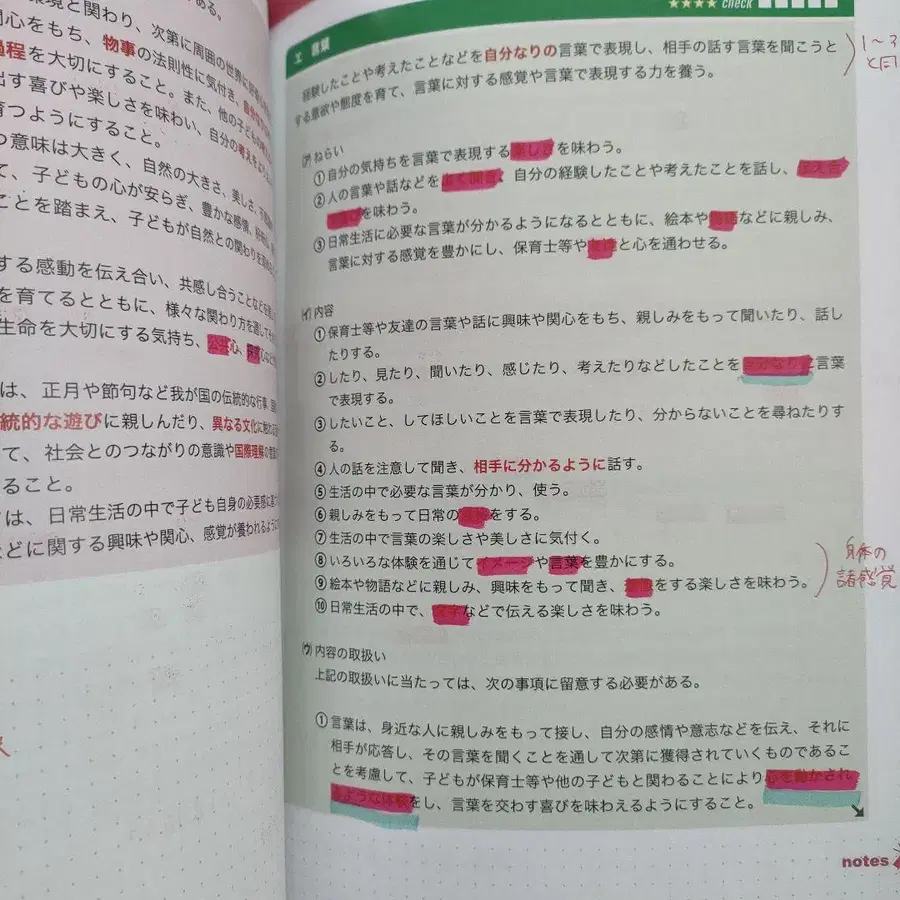 ある。
環境と関わり、次第に周囲の世界に
関心をもち、物事の法則性に気付き、
過程を大切にすること。また、他の子どもの
出す喜びや楽しさを味わい、自分の考えを
育つようにすること。
つ意味は大きく、自然の大きさ、美しさ、
て、子どもの心が安らぎ、豊かな感情、
ことを踏まえ、子どもが自然との関わりを
する感動を伝え合い、共感し合うことなどを
を育てるとともに、様々な関わり方を通して
生命を大切にする気持ち、公共心、探究心など
は、正月や節句など我が国の伝統的な行事、
統的な遊びに親しんだり、異なる文化に触れる
て、社会とのつながりの意識や国際理解の
ること。
は、日常生活の中で子ども自身の必要感に
などに関する興味や関心、感覚が養われるように
★★★★ check
エ 言葉
経験したことや考えたことなどを自分なりの言葉で表現し、相手の話す言葉を聞こうと
する意欲や態度を育て、言葉に対する感覚や言葉で表現する力を養う。
1〜3
と同
㋐ ねらい
①自分の気持ちを言葉で表現する楽しさを味わう。
②人の言葉や話などをよく聞き、自分の経験したことや考えたことを話し、伝え合
を味わう。
③日常生活に必要な言葉が分かるようになるとともに、絵本や物語などに親しみ、
言葉に対する感覚を豊かにし、保育士等や友達と心を通わせる。
㋑ 内容
①保育士等や友達の言葉や話に興味や関心をもち、親しみをもって聞いたり、話し
たりする。
②したり、見たり、聞いたり、感じたり、考えたりなどしたことを自分なりに言葉
で表現する。
③したいこと、してほしいことを言葉で表現したり、分からないことを尋ねたりす
る。
④人の話を注意して聞き、相手に分かるように話す。
⑤生活の中で必要な言葉が分かり、使う。
⑥親しみをもって日常の挨拶をする。
⑦生活の中で言葉の楽しさや美しさに気付く。
⑧いろいろな体験を通じてイメージや言葉を豊かにする。
⑨絵本や物語などに親しみ、興味をもって聞き、想像をする楽しさを味わう。
⑩日常生活の中で、文字などで伝える楽しさを味わう。
身体の
諸感覚
㋒ 内容の取扱い
上記の取扱いに当たっては、次の事項に留意する必要がある。
①言葉は、身近な人に親しみをもって接し、自分の感情や意志などを伝え、それに
相手が応答し、その言葉を聞くことを通して次第に獲得されていくものであるこ
とを考慮して、子どもが保育士等や他の子どもと関わることにより心を動かされ
るような体験をし、言葉を交わす喜びを味わえるようにすること。
notes